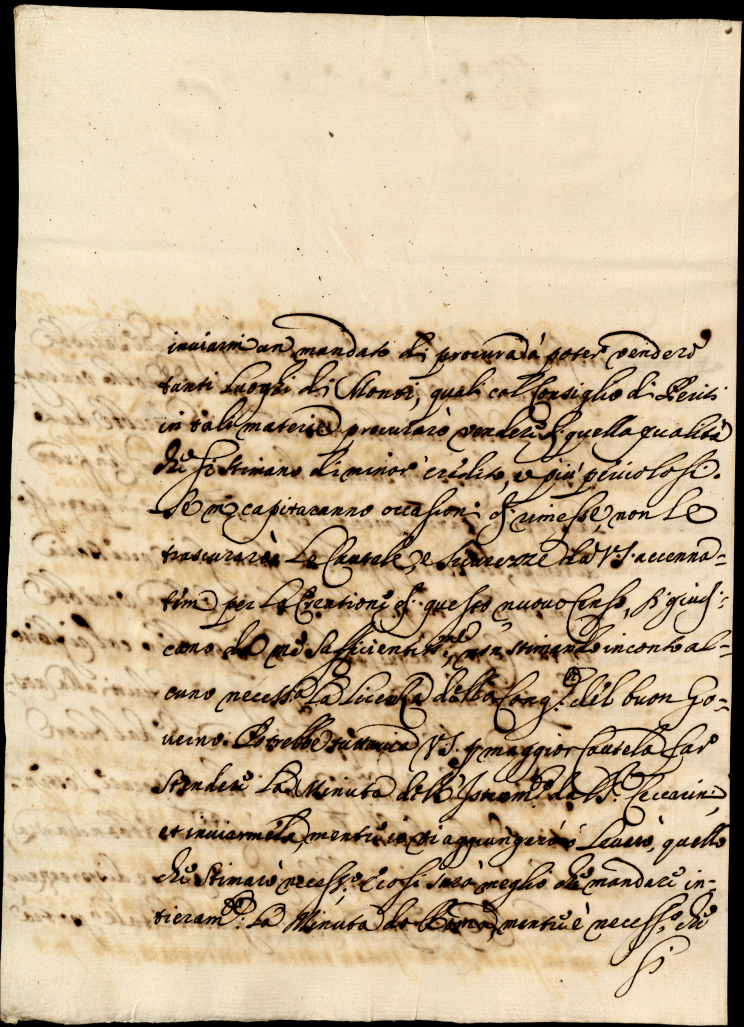 inviarmi un mandato di procura à poter vendere
tanti luoghi di Monti, quali col Consiglio di Periti
in tali materie procurarò vendere di quella qualità
che si stimano di minor credito, e più pericolosi.
Se mi capitaranno occasioni di rimesse non le
trascurarò. Le Cautele, e sicurezze da V.S. accenna=
temi per la Creatione di questo nuovo Censo, si giudi=
cano da me sufficientiss.me, non stimando in conto al=
cuno necess.a la licenza della Cong.ne del buon Go=
verno. Potrebbe tuttavia V.S. p maggior Cautela far
stendere la Minuta dell'Istrom.to dal S.r Ceccarini,
et inviarmela, mentre io vi aggiungerò, ò levarò, quello
che stimarò necess.o e così sarà meglio che mandare in=
tieram.te la Minuta da Roma, mentre è necess.o che
si